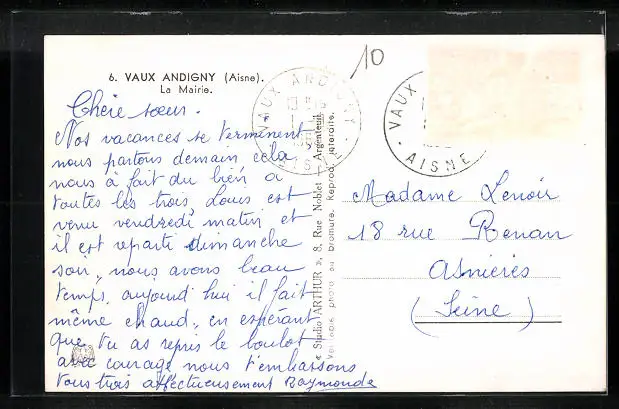 6. VAUX ANDIGNY (Aisne).
La Mairie.
10
VAUX ANDIGNY
AISNE
VAUX
AISNE
Chère sœur.
Nos vacances se terminent
nous partons demain, cela
nous à fait du bien a
toutes les trois Louis est
venu vendredi matin et
il est reparti dimanche
soir, nous avons beau
temps, aujourd'hui il fait
même chaud, en espérant
que tu as repris le boulot
avec courage nous t'embrassons
tous trois affectueusement Raymonde
« Studio ARTHUR », 8, Rue Noblet - Argenteuil
Véritable photo au bromure. Reprod. interdite.
Madame Lenoir
18 rue Renan
Asnières
(Seine)